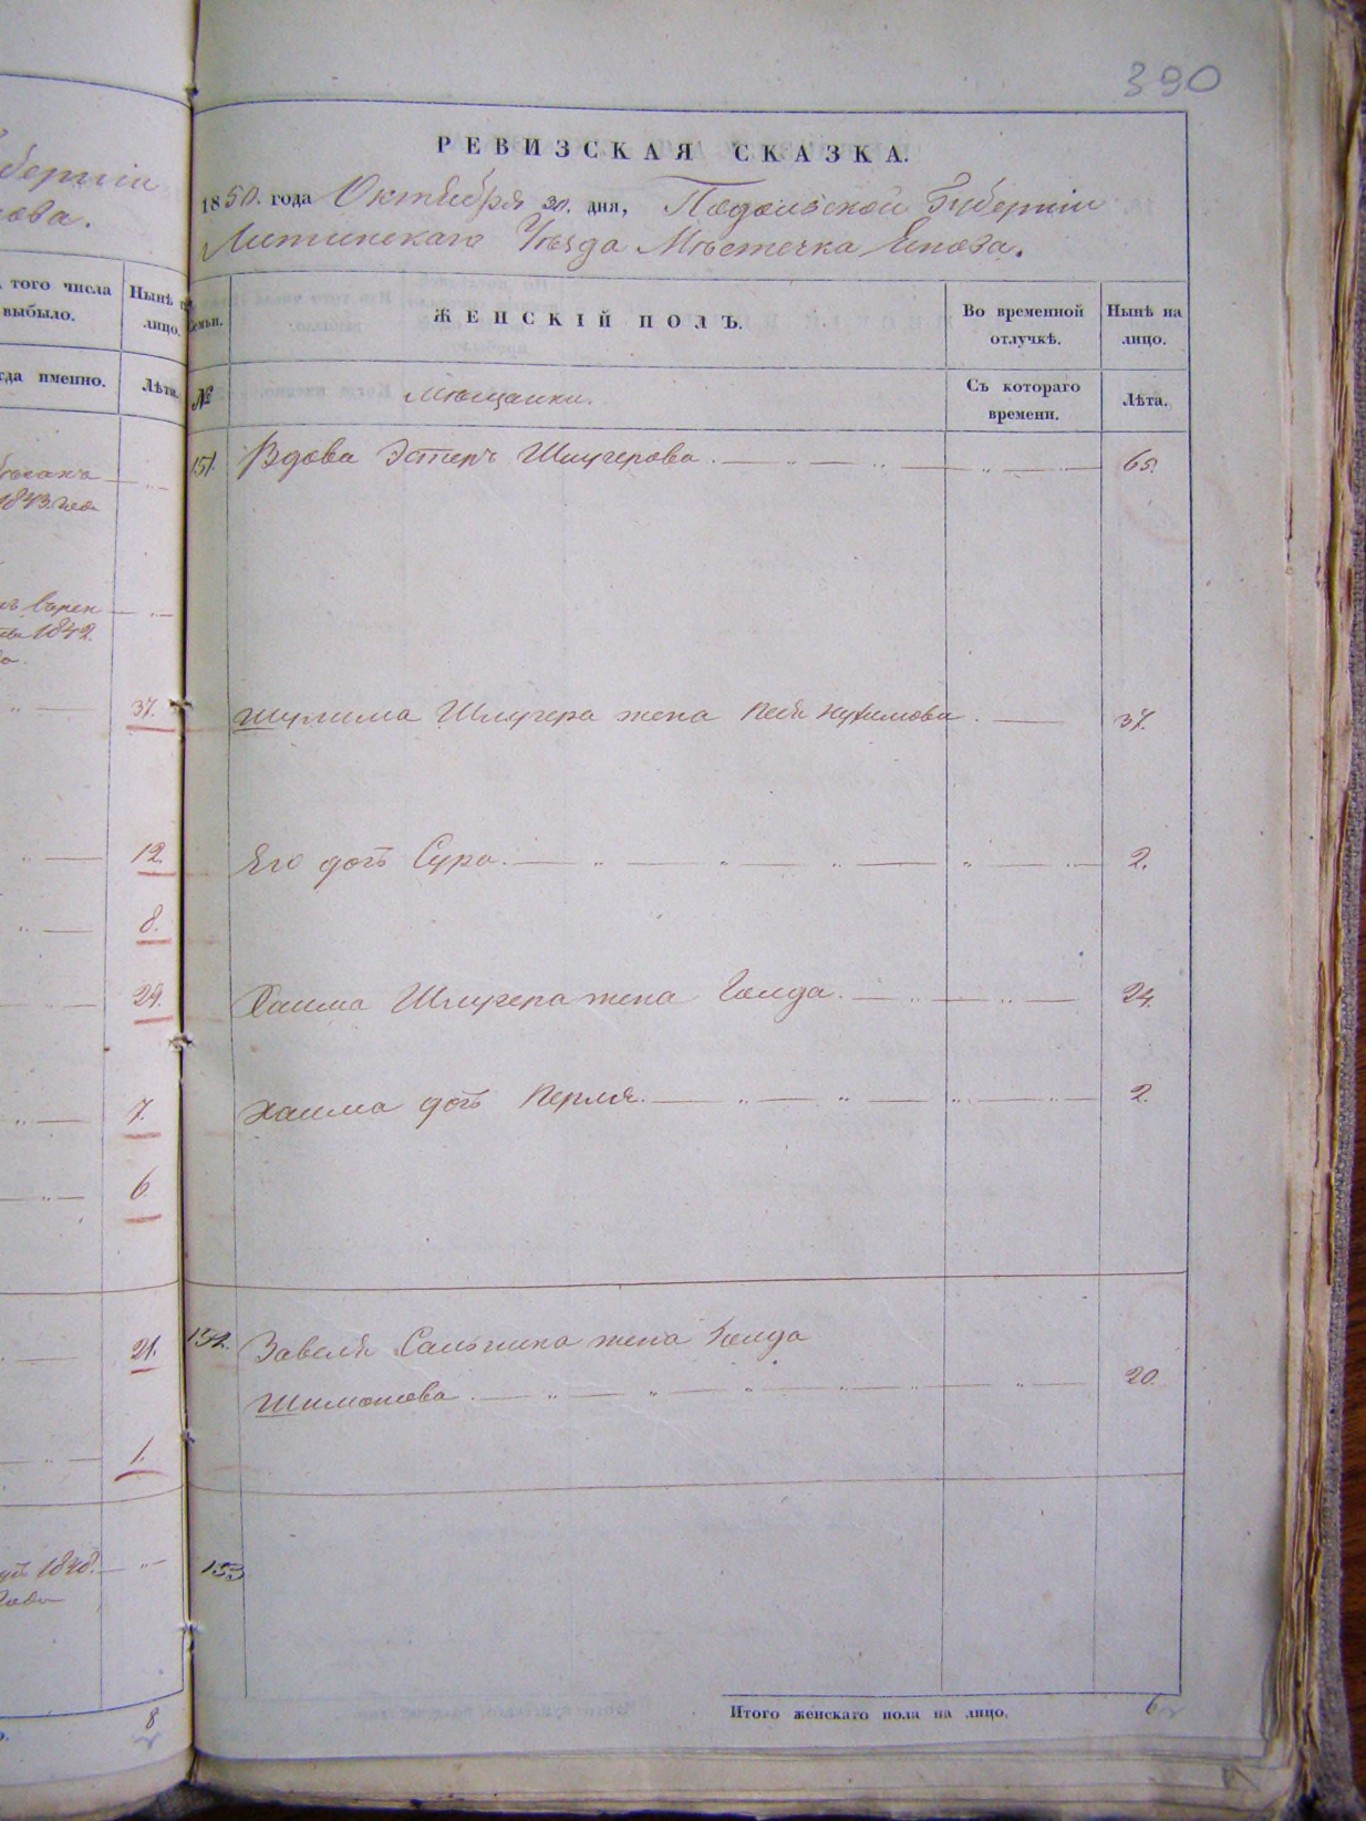 390
берніи
ова.
РЕВИЗСКАЯ СКАЗКА.
1850. года Октября 30. дня, Подольской Губерніи
Литинскаго Уѣзда Мѣстечка Янова.
того числа
выбыло.
Нынѣ
лицо.
гда именно.
Лѣта.
Семьи.
ЖЕНСКІЙ ПОЛЪ.
Во временной
отлучкѣ.
Нынѣ на
лицо.
№
Мѣщанки.
Съ котораго
времени.
Лѣта.
151. Вдова Эстеръ Шмугерова. 65.
1843. года
1842.
37.
Шулима Шмугера жена Песя Нухимова. 37.
12.
Его дочь Сура. 2.
8.
29.
Хаима Шмугера жена Голда. 24.
7.
Хаима дочь Перля. 2.
6.
21.
152. Завеля Сальника жена Голда
Шимонова. 20.
1.
1848.
года
153
8
Итого женскаго пола на лицо. 6